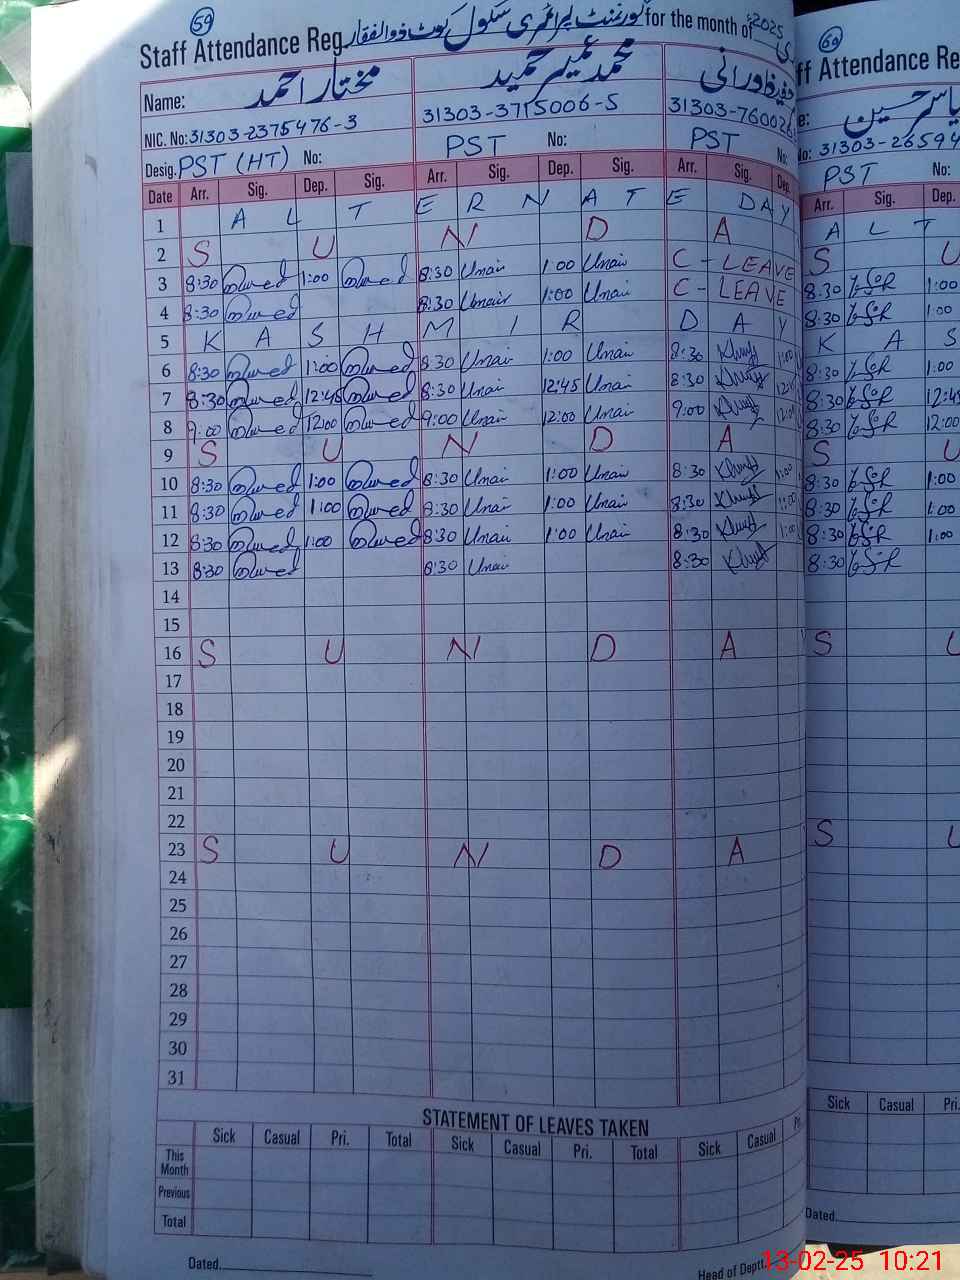 59
Staff Attendance Reg گورنمنٹ پرائمری سکول کوٹ ذوالفقار for the month of 2025
Name: مختار احمد محمد عمیر حمید
NIC. No: 31303-2375476-3 31303-3715006-5 31303-760026
Desig. PST (HT) No: PST No: PST No:
Date Arr. Sig. Dep. Sig. Arr. Sig. Dep. Sig. Arr. Sig. Dep.
1 A L T E R N A T E DAY
2 S U N D A
3 8:30 1:00 8:30 Umair 1:00 Umair C - LEAVE
4 8:30 8:30 Umair 1:00 Umair C - LEAVE
5 K A S H M I R D A Y
6 8:30 1:00 8:30 Umair 1:00 Umair 8:30 1:00
7 8:30 12:45 8:30 Umair 12:45 Umair 8:30
8 9:00 12:00 9:00 Umair 12:00 Umair 9:00
9 S U N D A
10 8:30 1:00 8:30 Umair 1:00 Umair 8:30 1:00
11 8:30 1:00 8:30 Umair 1:00 Umair 8:30 1:00
12 8:30 1:00 8:30 Umair 1:00 Umair 8:30 1:00
13 8:30 8:30 Umair 8:30
14
15
16 S U N D A
17
18
19
20
21
22
23 S U N D A
24
25
26
27
28
29
30
31
STATEMENT OF LEAVES TAKEN
Sick Casual Pri. Total Sick Casual Pri. Total Sick Casual
This Month
Previous
Total
Dated
Head of Deptt.
ff Attendance Re
e: یاسر حسین
No: 31303-26594
PST No:
Arr. Sig. Dep.
A L T
S U
8.30 1:00
8:30 1:00
K A S
8:30 1:00
8:30 12:45
8:30 12:00
S U
8:30 1:00
8:30 1:00
8:30 1:00
8:30
S U
S U
Sick Casual Pri.
Dated
13-02-25 10:21